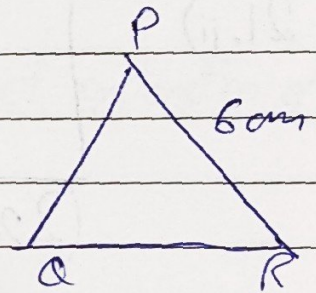 P
6 cm
Q R